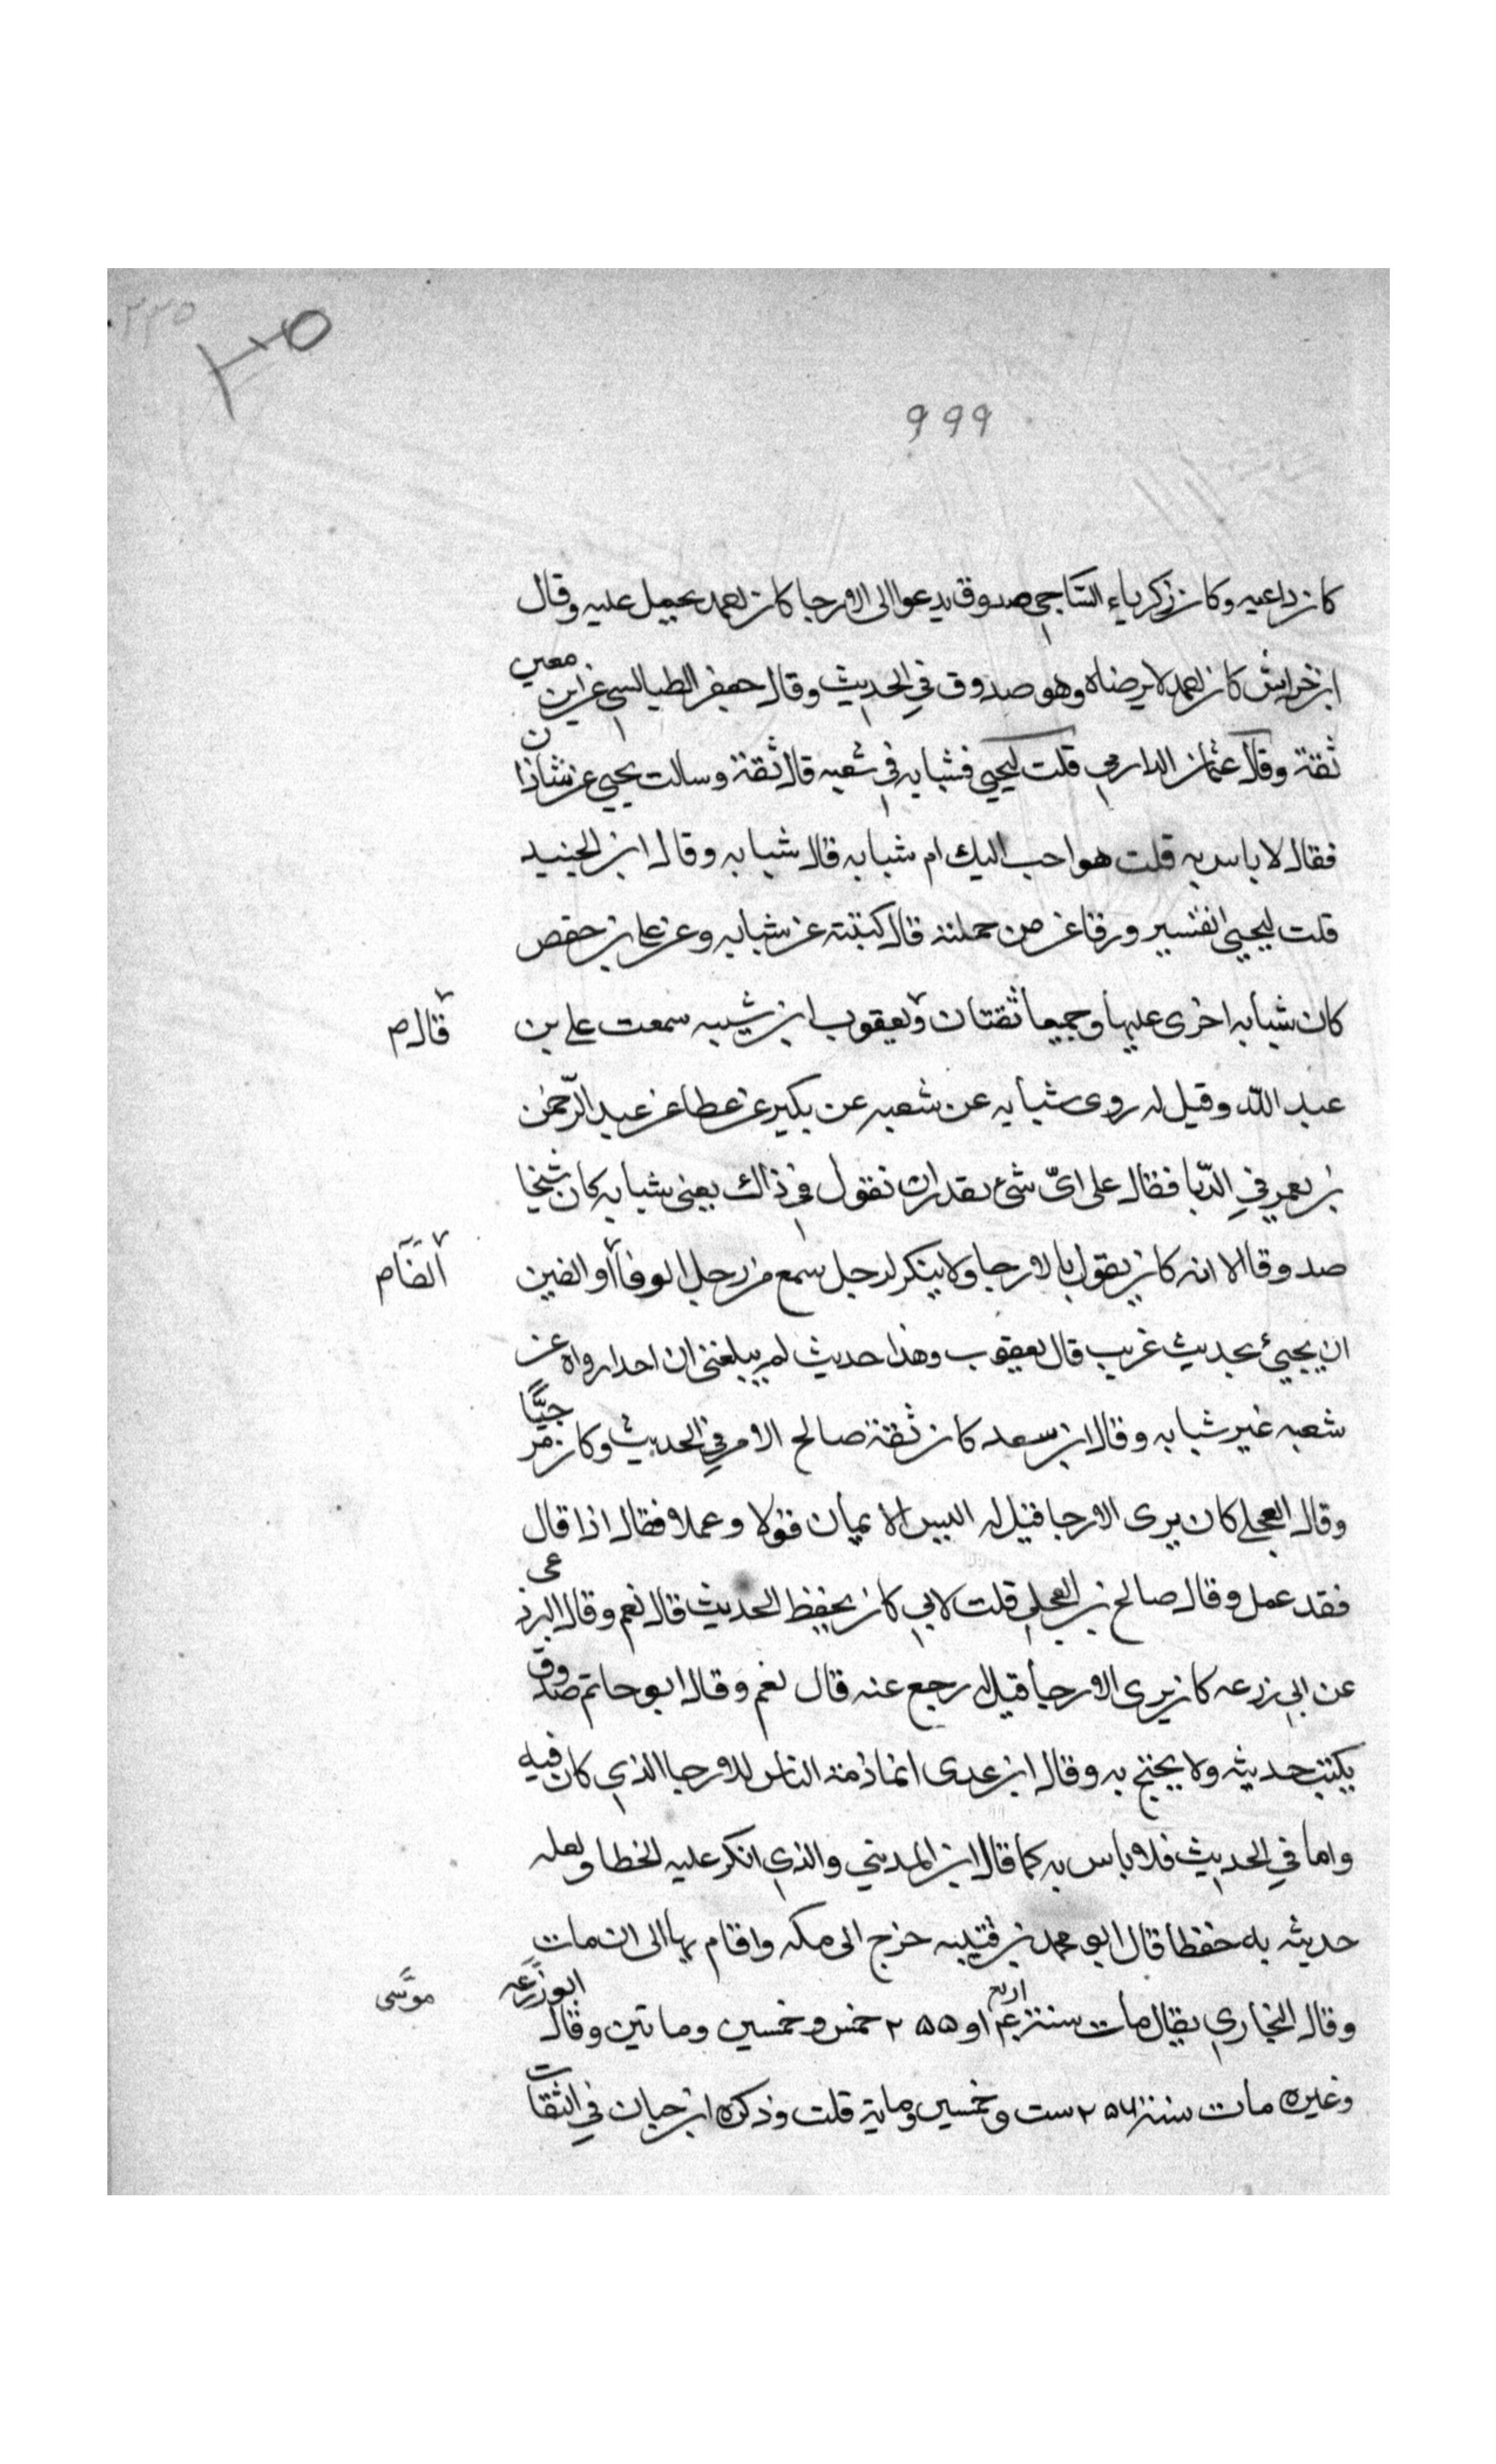 ٣٣٥
999
كان داعيه وكان زكرياء الساجي صدوق يدعوا الى الارجا كان احمد يحمل عليه وقال
ابن خراش كان احمد لا يرضاه وهو صدوق في الحديث وقال جعفر الطيالسي عن ابن معين
ثقة وقال عثمان الدارمي قلت ليحيى فشبابه في شعبه قال ثقة وسالت يحيى عن شاذان
فقال لا باس به قلت هو احب اليك ام شبابه قال شبابه وقال ابن الجنيد
قلت ليحيى تفسير ورقا عن من حملته قال كتبته عن شبابه وعن علي بن حفص
كان شبابه اخرى عليها وجميعا ثقتان ويعقوب ابن شيبه سمعت علي بن
قال م
عبد الله وقيل له روى شبابه عن شعبه عن بكير عن عطا عن عبد الرحمن
بن يعمر في الدبا فقال على اي شئ نقدر ان نقول في ذاك يعني شبابه كان شيخا
صدوقا الا انه كان يقول بالارجا ولا ينكر لرجل سمع من رجل الوفا او الفين
الفا م
ان يجيئ بحديث غريب قال يعقوب وهذا حديث لم يبلغني ان احدا رواه عن
شعبه غير شبابه وقال ابن سعد كان ثقة صالح الامر في الحديث وكان مرجيًّا
وقال العجلي كان يرى الارجا قيل له اليس الايمان قولا وعملا فقال اذا قال
فقد عمل وقال صالح بن العجلي قلت لابي كان يحفظ الحديث قال نعم وقال البرذعي
عن ابي زرعه كان يرى الارجا قيل له رجع عنه قال نعم وقال ابو حاتم صدوق
يكتب حديثه ولا يحتج به وقال ابن عدى انما ذمة الناس للارجا الذي كان فيه
واما في الحديث فلا باس به كما قال ابن المديني والذي انكر عليه الخطا ولعله
حديثه به حفظا قال ابو محمد بن قتيبه خرج الى مكه واقام بها الى ان مات
وقال البخاري يقال مات سنة اربع او ٢٥٥ خمس وخمسين وماتين وقال ابو زرعه
موسى
وغيره مات سنة ٢٥٦ ست وخمسين وماية قلت وذكره ابن حبان في الثقات